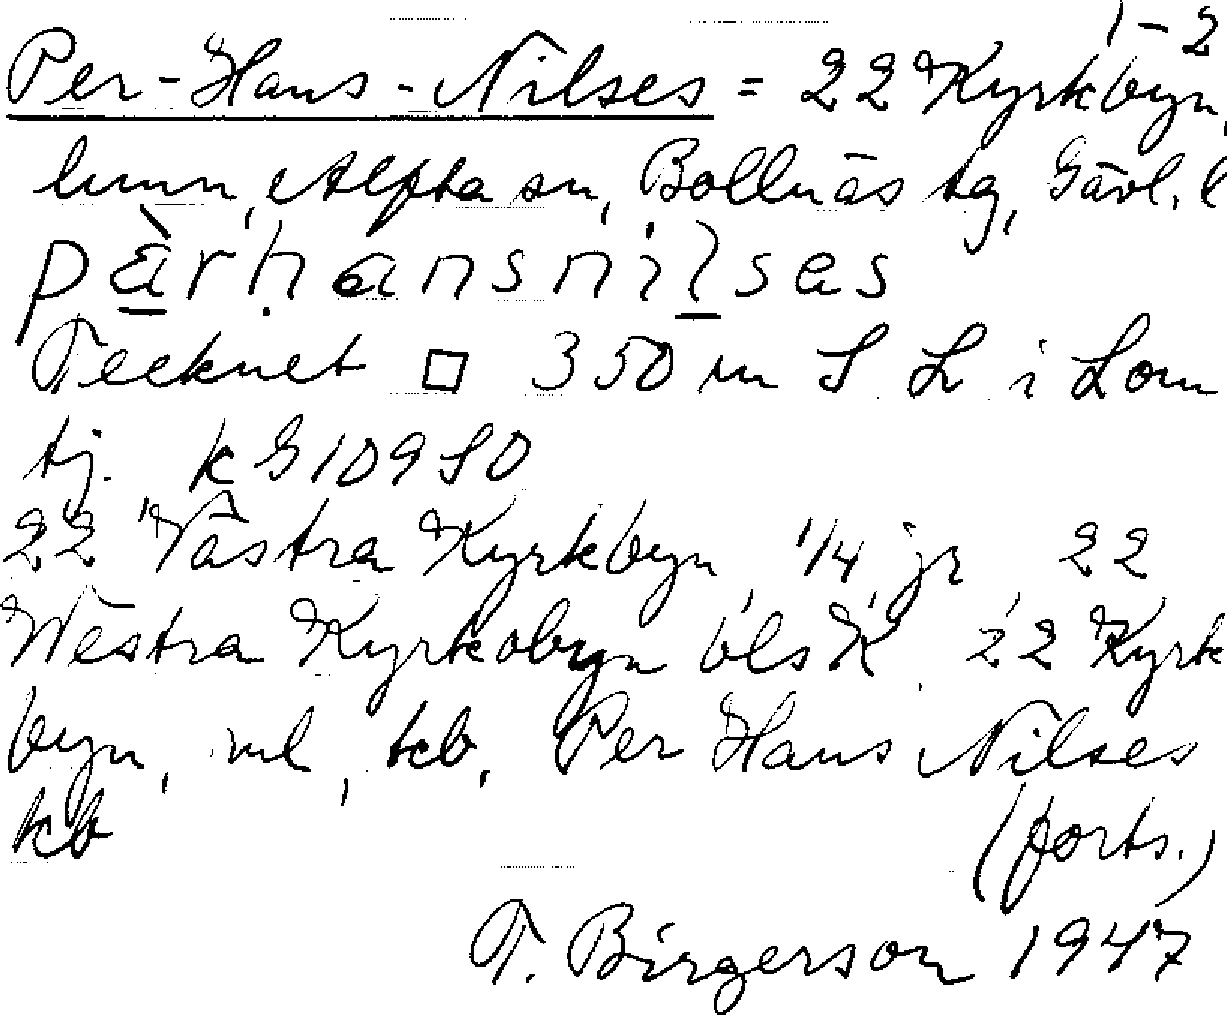 1-2
Per-Hans-Nilses = 22 Kyrkbyn,
hmn, Alfta sn, Bollnäs tg, Gävl. l
pàrhansnilses
Tecknet □ 350 m S L i Lom
tj. k G 109 SO
22 Västra Kyrkbyn 1/4 jr, 22
Westra Kyrkobyn öls K, 22 Kyrk
byn, ml, tcb, Per Hans Nilses
tcb (forts.)
T. Birgerson 1947